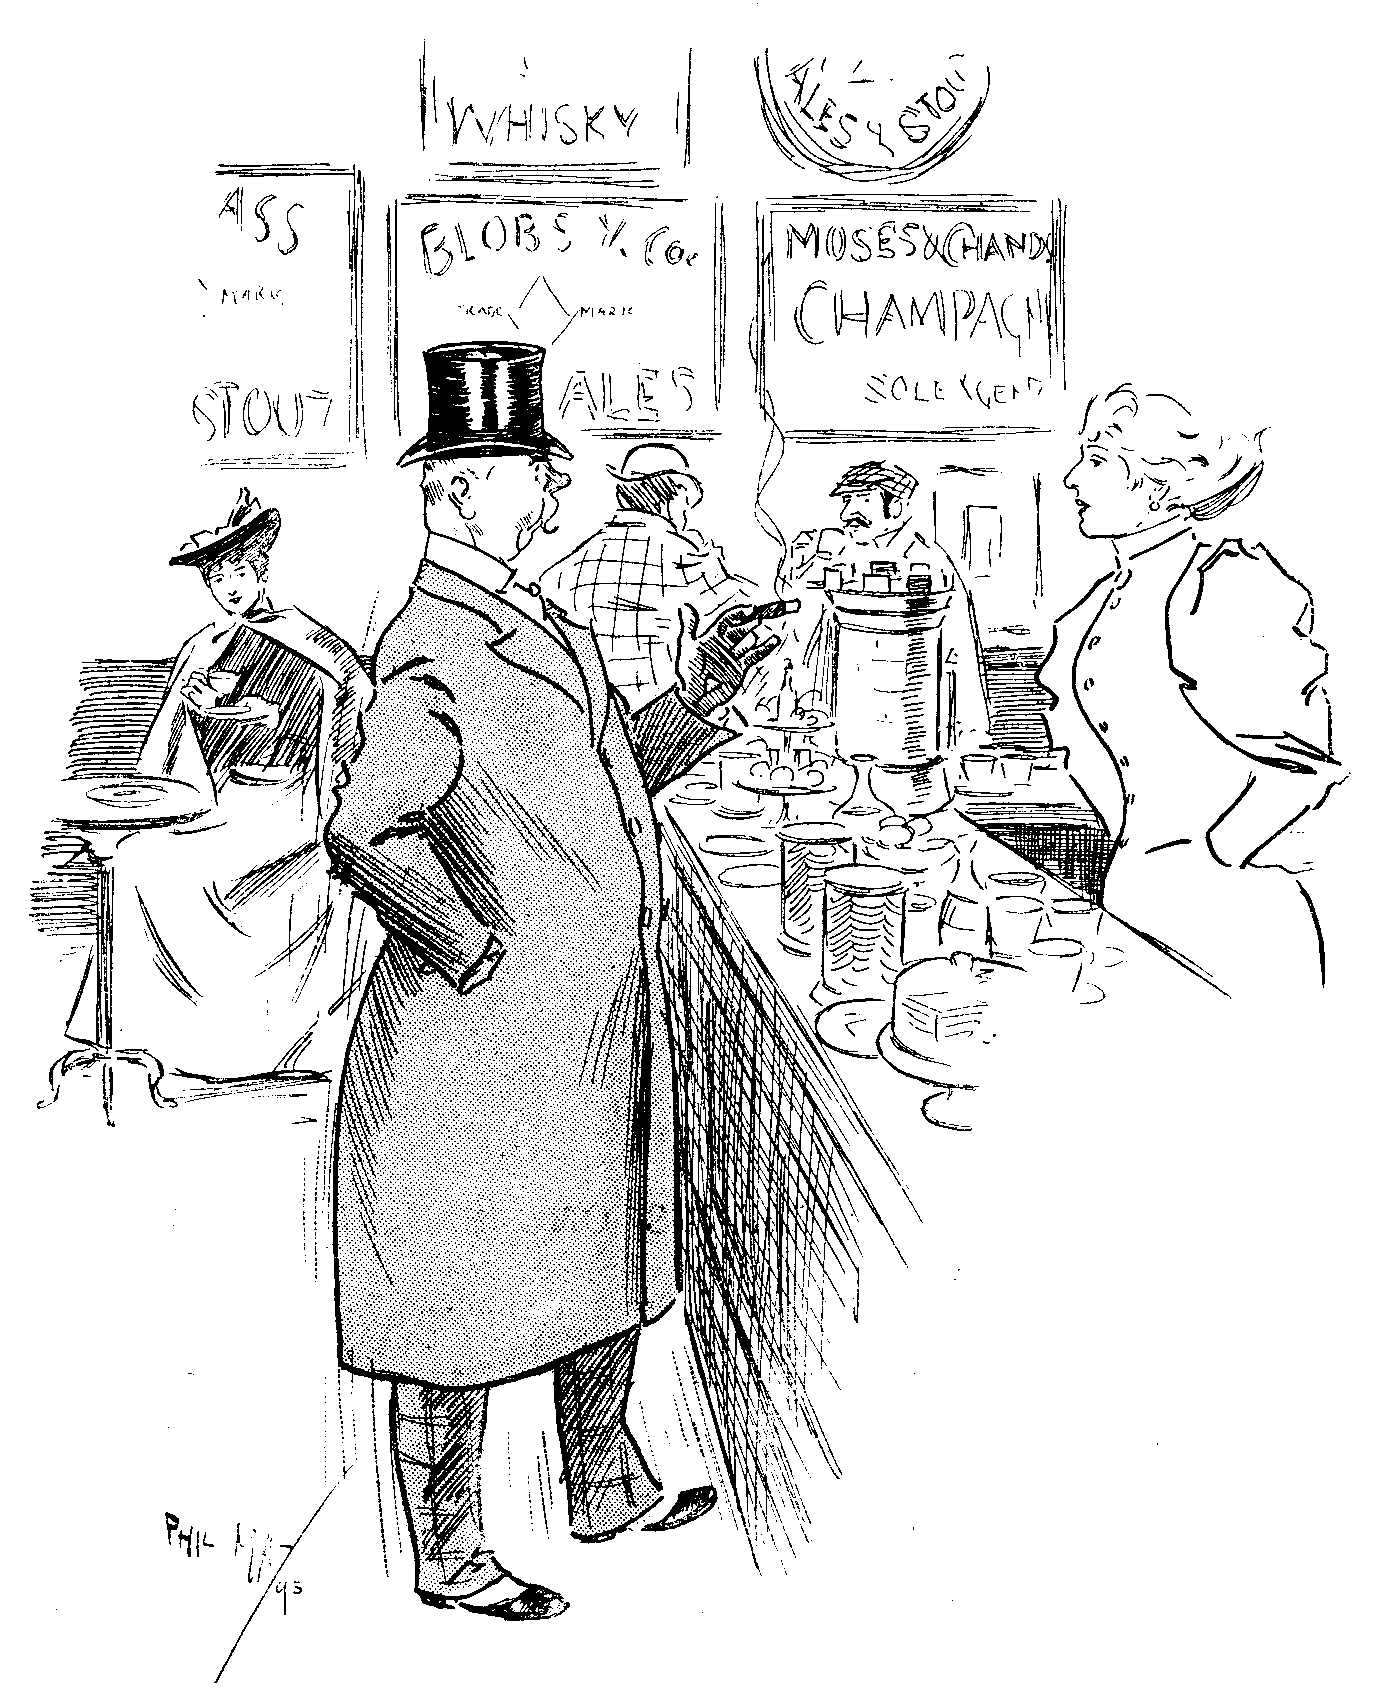 WHISKY
ALES & STOU
ASS
MARK
STOUT
BLOBS & Co.
TRADE MARK
ALES
MOSES & CHAND
CHAMPAGN
SOLE AGENT
PHIL MAY
93